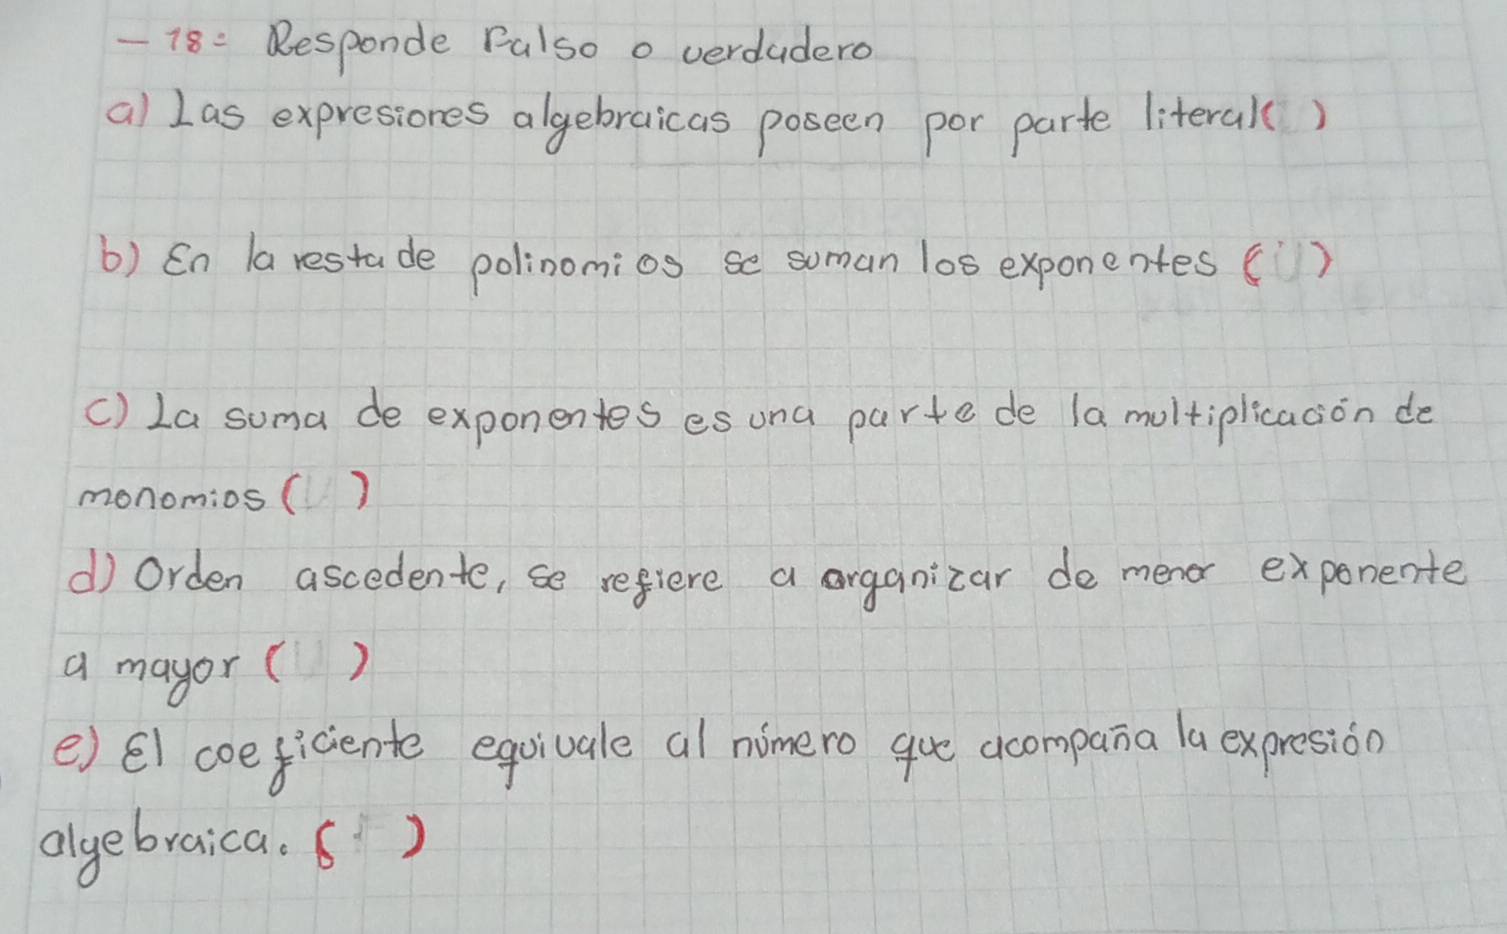 - 18= Responde Falso o verdadero
a) Las expresiones algebraicas poseen por parte literal( )
b) En la resta de polinomios se suman los exponentes ( )
c) La suma de exponentes es una parte de la multiplicación de
monomios ( )
d) Orden ascedente, se refiere a organizar de menor exponente
a mayor ( )
e) El coeficiente equivale al número que acompaña la expresión
algebraica. ( )